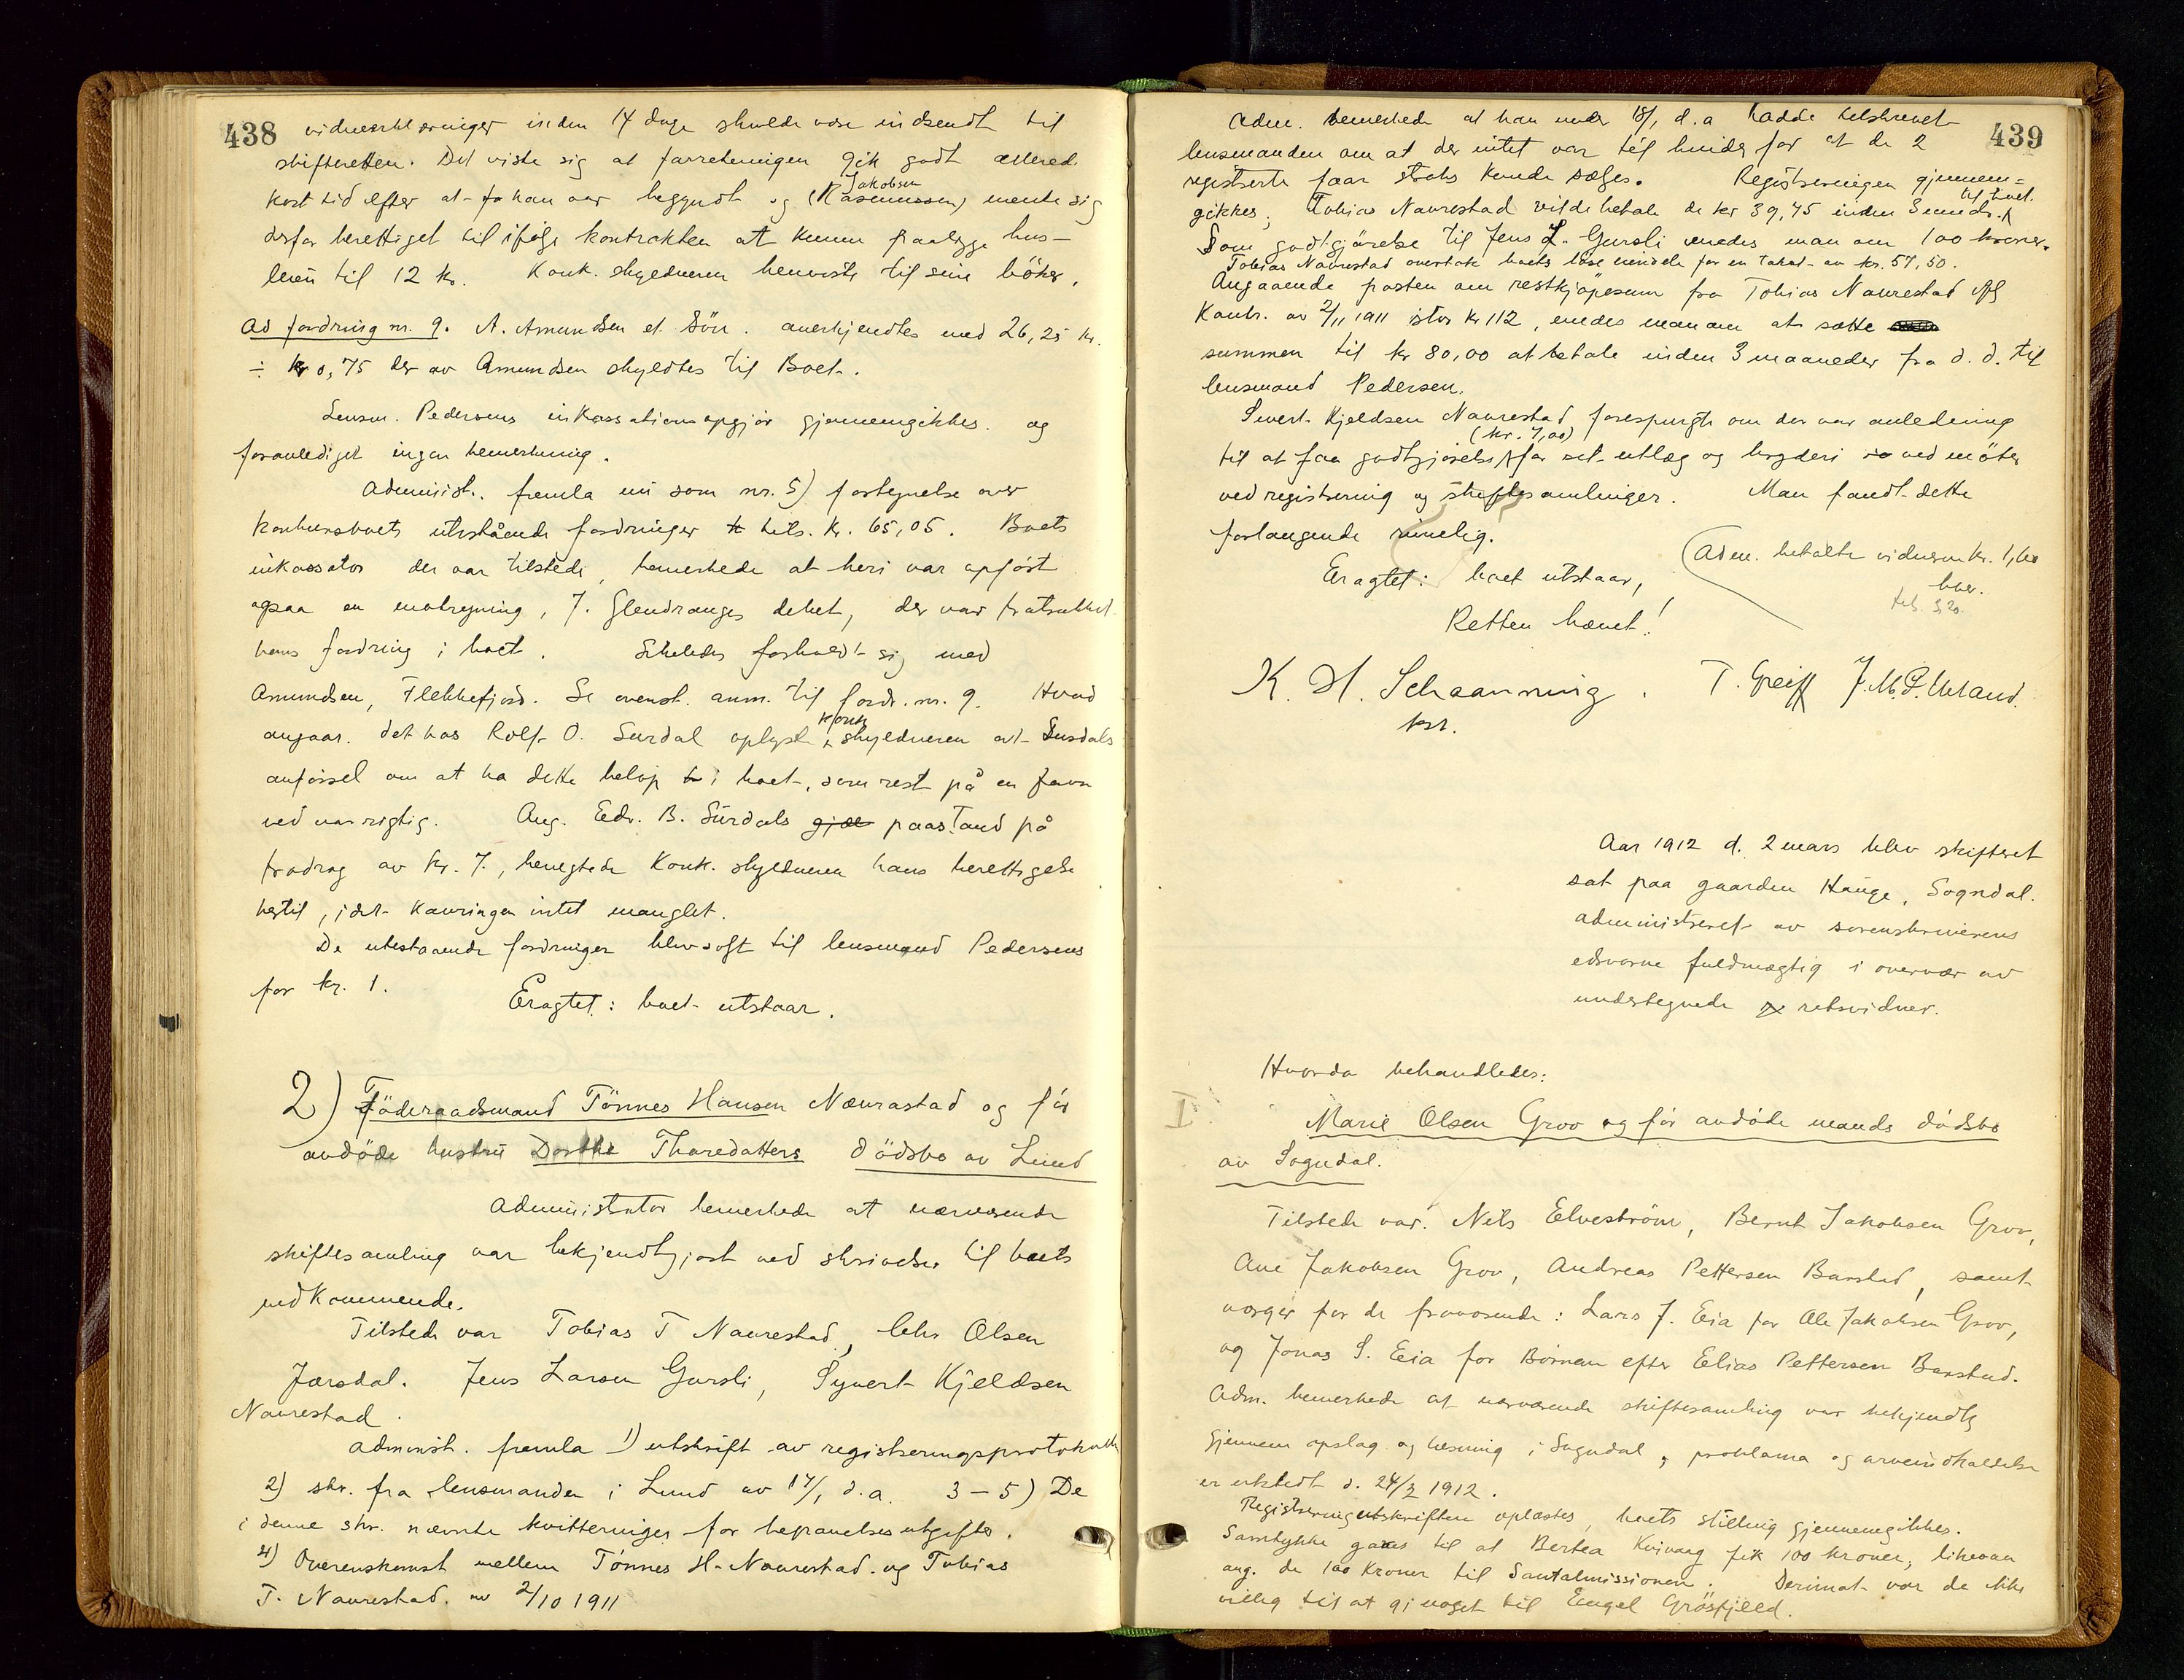 438
vidneerklæringer inden 14 dage skulde være indsendt til
skifteretten. Det viste sig at forretningen gik godt allered
kort tid efter at han var begyndt og (Rasmussen) Jakobsen mente sig
derfor berettiget til ifølge kontrakten at kunne paalægge hus-
leien til 12 kr. Konk. skyldneren henviste til sine bøker.
Ad fordring nr. 9. A. Amundsen et Sön. anerkjendtes med 26,25 kr.
÷ kr 0,75 der av Amundsen skyldtes til Boet.
Lensm. Pedersens inkassationsopgjør gjennemgikkes og
foranlediget ingen bemerkning.
Administ. fremla nu som nr. 5) fortegnelse over
konkursboets utestående fordringer til bels. kr. 65,05. Boets
inkassator der var tilstede, bemerkede at heri var opført
ogsaa en motregning, J. Glendranges debet, der var fratrukket
hans fordring i boet. Likeledes forholdt sig med
Amundsen, Flekkefjord. Se ovenst. anm. til fordr. nr. 9. Hvad
angaar det hos Rolf O. Surdal oplyste konk. skyldneren at Surdals
anførsel om at ha dette beløp i boet, som rest på en favn
ved var rigtig. Ang. Edv. B. Surdals paastand på
fradrag av kr. 7., benegtede Konk. skyldneren hans berettigelse
hertil, idet kauringen intet manglet.
De utestaaende fordringer blev solgt til lensmand Pedersens
for kr. 1.
Eragtet: boet utstaar.
2) Föderaadsmand Tönnes Hansen Nævrastad og før
avdøde hustru Dorthe Tharedatters dödsbo av Lund
Administrator bemerkede at nærværende
skiftesamling var bekjendtgjort ved skrivelse til boets
vedkommende.
Tilstede var Tobias T Naurestad, Olsen
Jærdal. Jens Larsen Gursli, Syvert Kjeldsen
Naurestad.
Administ. fremla 1) utskrift av registreringsprotokollen
2) skr. fra lensmanden i Lund av 17/1 d.a. 3-5) De
i denne skr. nævnte kvitteringer for begravelsesutgifter.
4) Overenskomst mellem Tönnes H. Naurestad og Tobias
T. Naurestad av 2/10 1911
439
Adm. bemerkede at han under 18/1 d.a hadde tilskrevet
lensmanden om at der intet var til hinder for at de 2
registrerte faar straks kunde sælges. Registreringen gjennem=
gikkes; Tobias Naurestad vilde betale de kr 39,75 inden 3 mndr. til boet.
Som godtgjörelse til Jens L. Gursli enedes man om 100 kroner.
Tobias Naurestad overtok boets løse eiendele for en takst av kr. 57,50.
Angaaende posten om restkjøpesum fra Tobias Naurestad iflg
Kontr. av 2/11 1911 istor kr 112, enedes man om at sætte
summen til kr 80,00 at betale inden 3 maaneder fra d.d. til
lensmand Pedersen.
Sivert Kjeldsen Naurestad forespurgte om der var anledning
til at faa godtgjørelse (kr. 7,00) for set utlæg og bryderi ved møter
ved registrering og skiftesamlinger. Man fandt dette
forlangende rimelig.
Eragtet: boet utstaar,
(Adm. betalte vidnerne kr. 1,60
hver.
Retten hævet!
K. H. Schaanning. T. Greiff J. M. P. Ueland.
kst.
Aar 1912 d. 2 mars blev skifteret
sat paa gaarden Hauge, Sogndal.
administreret av sorenskriverens
edsvorne fuldmægtig i overvær av
undertegnede retsvidner.
Hvorda behandledes:
I.
Marie Olsen Grov og før avdøde mands dødsbo
av Sogndal.
Tilstede var: Nils Elveström, Bernt Jakobsen Grov,
Ane Jakobsen Grov, Andreas Pettersen Barstad, samt
værger for de fraværende: Lars J. Eia for Ole Jakobsen Grov,
og Jonas S. Eia for Børnene efter Elias Pettersen Barstad.
Adm. bemerkede at nærværende skiftesamling var bekjendtg
gjennem opslag og læsning i Sogndal, proklama og arveindkaldelse
er utstedt d. 24/2 1912.
Registreringsutskriften oplæstes, boets stilling gjennemgikkes.
Samtykke gaves til at Bertea Kvivaag fik 100 kroner, likesaa
ang. de 100 kroner til Santalmissionen. Derimot var de ikke
villig til at gi noget til Engel Gröstfjeld.